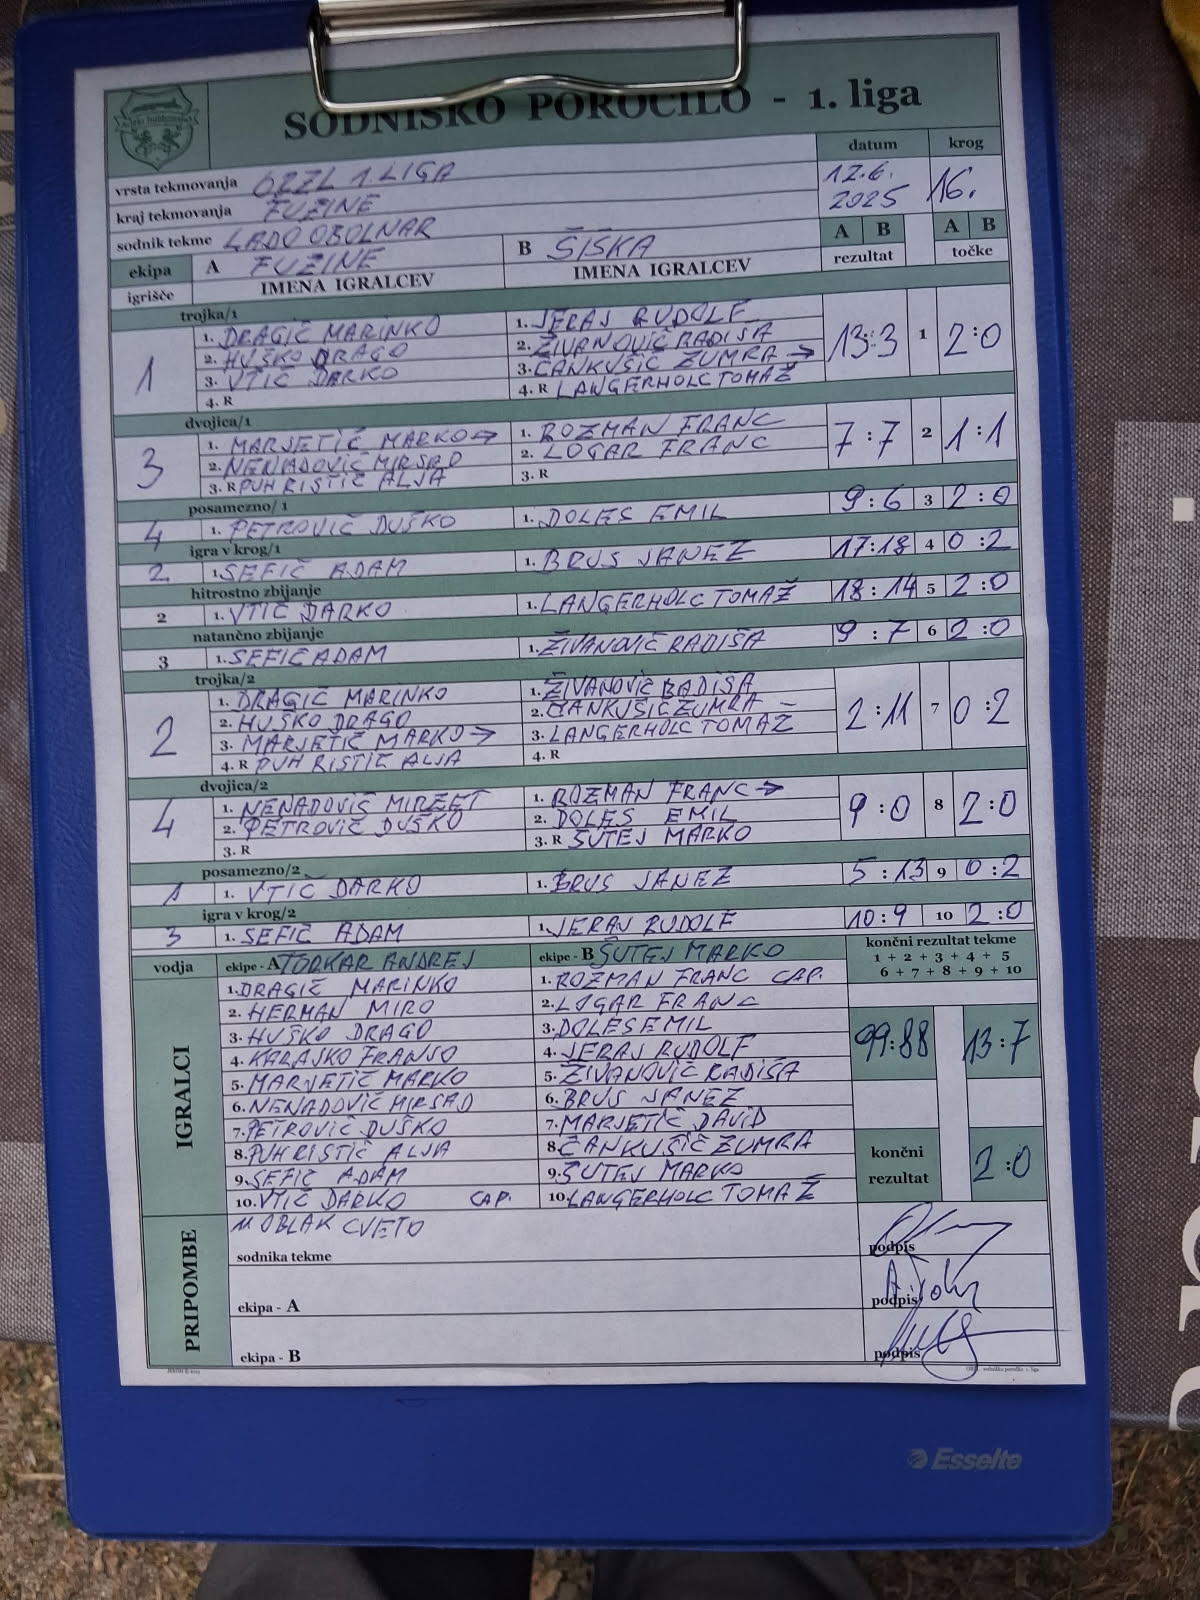 SODNISKO POROČILO - 1. liga
datum krog
vrsta tekmovanja OBZL 1. LIGA 12.6. 2025 16.
kraj tekmovanja FUŽINE
sodnik tekme LADO OBOLNAR A B A B
ekipa A FUŽINE B ŠIŠKA rezultat točke
igrišče IMENA IGRALCEV IMENA IGRALCEV
trojka/1
1 13:3 1 2:0
1. DRAGIČ MARINKO 1. JERAJ RUDOLF
2. HUŠKO DRAGO 2. ŽIVANOVIČ RADIŠA
3. VTIČ DARKO 3. ČANKUŠIČ ZUMRA →
4. R 4. R LANGERHOLC TOMAŽ
dvojica/1
3 7:7 2 1:1
1. MARJETIČ MARKO → 1. ROZMAN FRANC
2. NENADOVIČ MIRSAD 2. LOGAR FRANC
3. R PUH RISTIČ ALJA 3. R
posamezno/1
4 1. PETROVIČ DUŠKO 1. DOLES EMIL 9:6 3 2:0
igra v krog/1
2 1. SEFIČ ADAM 1. BRUS JANEZ 17:18 4 0:2
hitrostno zbijanje
2 1. VTIČ DARKO 1. LANGERHOLC TOMAŽ 18:14 5 2:0
natančno zbijanje
3 1. SEFIČ ADAM 1. ŽIVANOVIČ RADIŠA 9:7 6 2:0
trojka/2
2 2:11 7 0:2
1. DRAGIČ MARINKO 1. ŽIVANOVIČ RADIŠA
2. HUŠKO DRAGO 2. ČANKUŠIČ ZUMRA –
3. MARJETIČ MARKO → 3. LANGERHOLC TOMAŽ
4. R PUH RISTIČ ALJA 4. R
dvojica/2
4 9:0 8 2:0
1. NENADOVIČ 1. ROZMAN FRANC →
2. PETROVIČ DUŠKO 2. DOLES EMIL
3. R 3. R ŠUTEJ MARKO
posamezno/2
1 1. VTIČ DARKO 1. BRUS JANEZ 5:13 9 0:2
igra v krog/2
3 1. SEFIČ ADAM 1. JERAJ RUDOLF 10:9 10 2:0
vodja ekipe - A TORKAR ANDREJ ekipe - B ŠUTEJ MARKO končni rezultat tekme
1 + 2 + 3 + 4 + 5
6 + 7 + 8 + 9 + 10
IGRALCI
1. DRAGIČ MARINKO 1. ROZMAN FRANC CAP.
2. HERMAN MIRO 2. LOGAR FRANC
3. HUŠKO DRAGO 3. DOLES EMIL 99:88 13:7
4. KARAJKO FRANJO 4. JERAJ RUDOLF
5. MARJETIČ MARKO 5. ŽIVANOVIČ RADIŠA
6. NENADOVIČ MIRSAD 6. BRUS JANEZ
7. PETROVIČ DUŠKO 7. MARJETIČ DAVID
8. PUH RISTIČ ALJA 8. ČANKUŠIČ ZUMRA
9. SEFIČ ADAM 9. ŠUTEJ MARKO
10. VTIČ DARKO CAP. 10. LANGERHOLC TOMAŽ
končni rezultat 2:0
11 OBLAK CVETO
PRIPOMBE
sodnika tekme podpis
ekipa - A podpis
ekipa - B podpis
Esselte